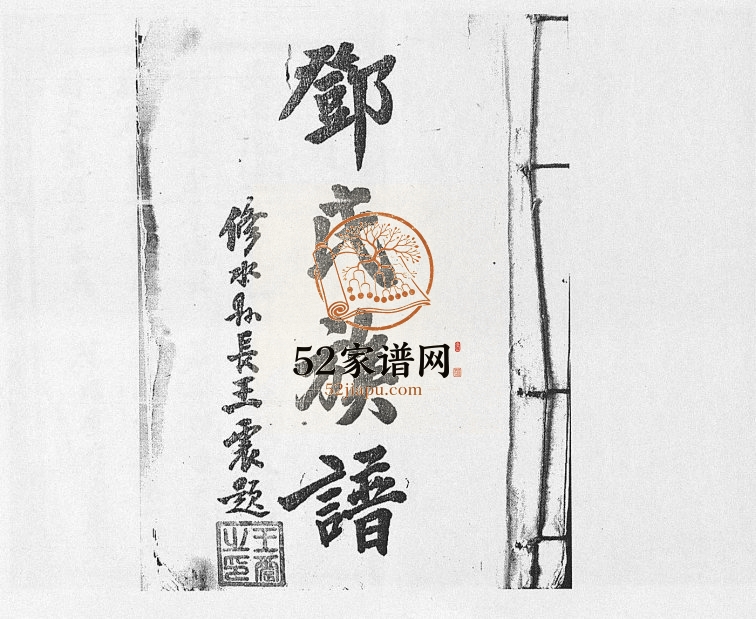 鄧氏族譜
修水县長王震題
52家谱网
52jiapu.com